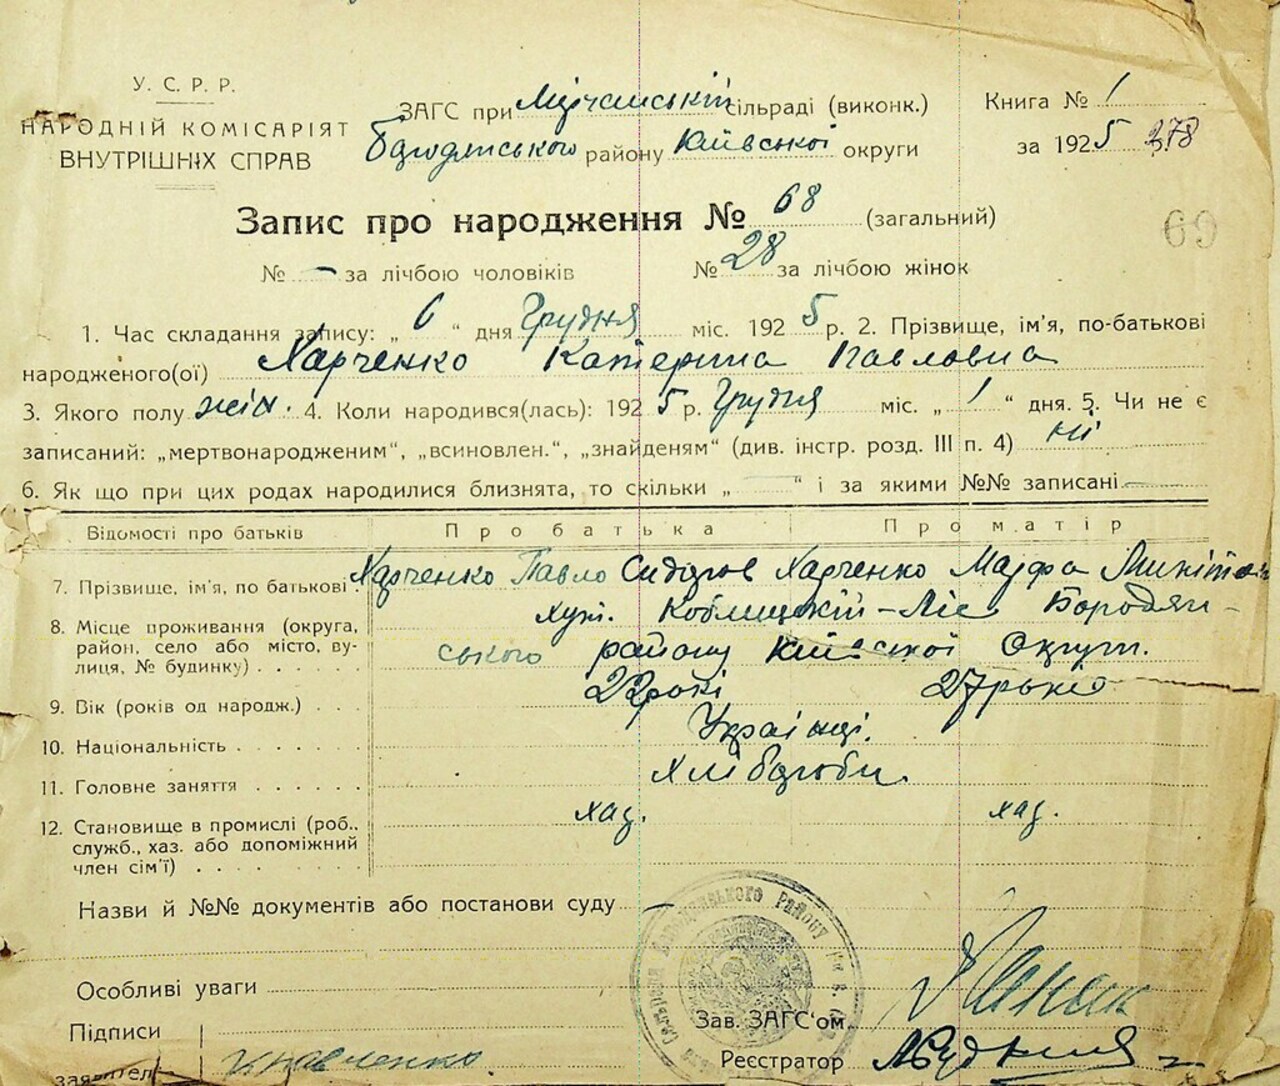 У. С. Р. Р.
НАРОДНІЙ КОМІСАРІЯТ
ВНУТРІШНІХ СПРАВ
ЗАГС при Мірчанській сільраді (виконк.)
Бородянського району Київської округи
Книга № 1
за 1925 278
Запис про народження № 68 (загальний)
69
№ — за лічбою чоловіків № 28 за лічбою жінок
1. Час складання запису: „ 6 “ дня Грудня міс. 1925 р. 2. Прізвище, ім'я, по-батькові
народженого(ої) Харченко Катерина Павловна
3. Якого полу жін. 4. Коли народився(лась): 1925 р. Грудня міс. „ 1 “ дня. 5. Чи не є
записаний: „мертвонародженим“, „всиновлен.“, „знайденям“ (див. інстр. розд. III п. 4) ні
6. Як що при цих родах народилися близнята, то скільки „ — “ і за якими №№ записані —
Відомості про батьків Про батька Про матір
7. Прізвище, ім'я, по батькові. Харченко Павло Сидоров Харченко Марфа
8. Місце проживання (округа, район, село або місто, вулиця, № будинку) . . . . . хут. Коблицький-Ліс Бородян-
ського району Київської Округи.
9. Вік (років од народж.) . . . 22 рокі 27 років
10. Національність . . . . . . . Українці.
11. Головне заняття . . . . . . Хлібороби.
12. Становище в промислі (роб., служб., хаз. або допоміжний член сім'ї) . . . . . . . . хаз. хаз.
Назви й №№ документів або постанови суду —
Особливі уваги
Підписи
заявителі
Зав. ЗАГС'ом
Реєстратор